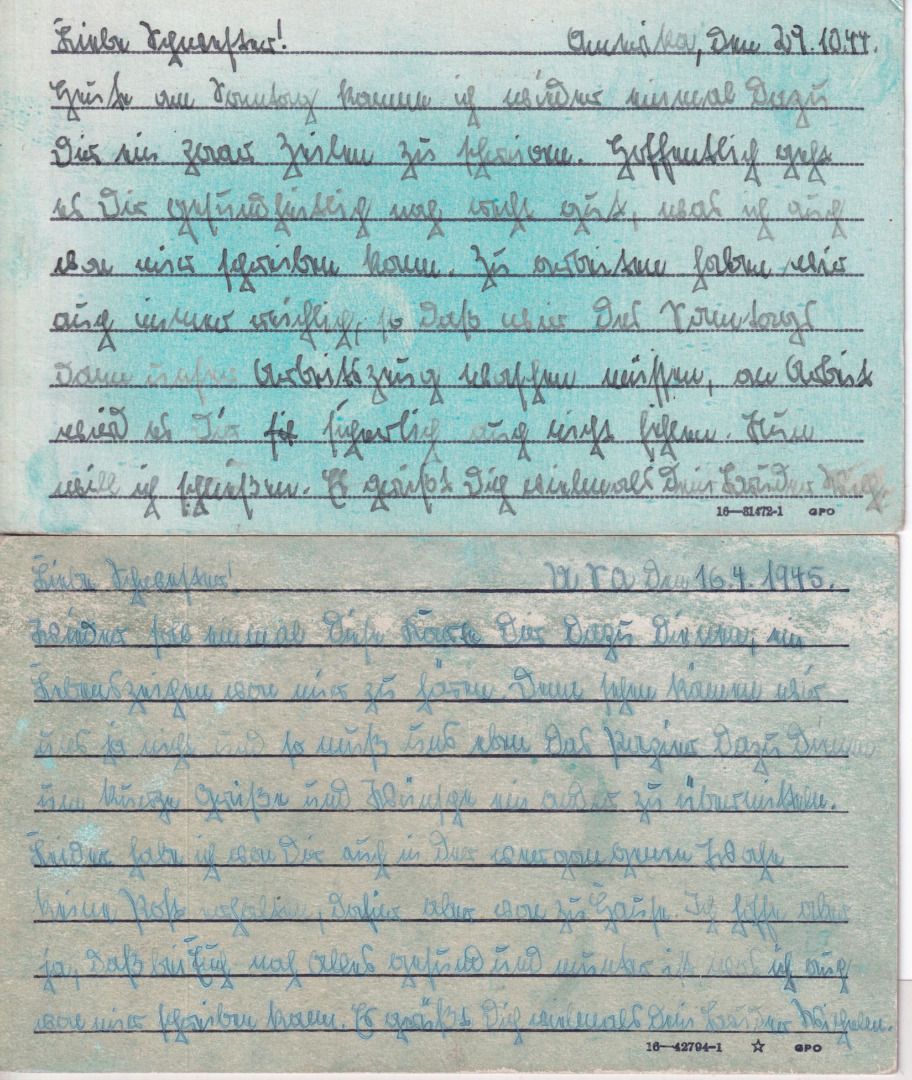 Liebe Schwester! Amerika, den 29.10.44.
Heute am Sonntag komme ich wieder einmal dazu
Dir ein paar Zeilen zu schreiben. Hoffentlich geht
es Dir gesundheitlich noch recht gut, was ich auch
von mir schreiben kann. Zu arbeiten haben wir
auch immer reichlich, so daß wir des Sonntags
dann unser Arbeitszeug waschen müssen, an Arbeit
wird es Dir sicherlich auch nicht fehlen. Nun
will ich schließen. Es grüßt Dich vielmals Dein Bruder
16—81472-1 GPO
Liebe Schwester! U S A den 16.4.1945.
Wieder soll einmal diese Karte Dir dazu dienen, ein
Lebenszeichen von mir zu hören. Denn sehen können wir
uns ja nicht und so muß uns eben das Papier dazu dienen
um kurze Grüße und Wünsche ein ander zu übermitteln.
Leider habe ich von Dir auch in der vergangenen Woche
keine Post erhalten, dafür aber von zu Hause. Ich hoffe aber
ja, daß bei Euch noch alles gesund und munter ist was ich auch
von mir schreiben kann. Es grüßt Dich vielmals Dein Bruder Wilhelm.
16—42794-1 ☆ GPO